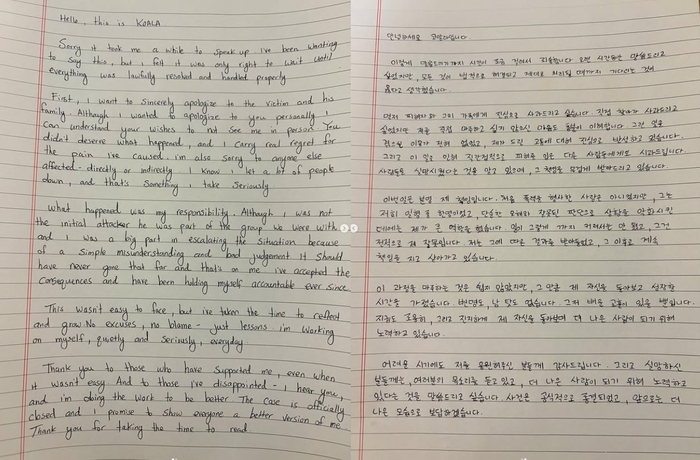 Hello, this is KOALA
Sorry it took me a while to speak up. i've been wanting
to say this, but i felt it was only right to wait until
everything was lawfully resolved and handled properly
First, i want to Sincerely apologize to the victim and his
family. Although i wanted to apologize to you personally i
can understand your wishes to not see me in person. You
didn't deserve what happened, and i carry real regret for
the pain i've caused. i'm also Sorry to anyone else
affected- directly or indirectly i know i let a lot of people
down, and that's Something i take Seriously.
What happened was my responsibility. Although i was not
the initial attacker he was part of the group we were with
and i was a big part in escalating the situation because
of a Simple misunderstanding and bad judgement it Should
have never gone that far and that's on me. i've accepted the
Consequences and have been holding myself accountable ever since
This wasn't easy to face, but i've taken the time to reflect
and grow. No excuses, no blame - just lessons. i'm working
on myself, quietly and Seriously, everyday
Thank you to those who have supported me, even when
it wasn't easy. And to those i've disappointed - i hear you,
and i'm doing the work to be better. The case is officially
closed and i promise to show everyone a better version of me
Thank you for taking the time to read
안녕하세요 코알라입니다
이렇게 말씀드리기까지 시간이 걸린 점 죄송합니다 오랜 시간동안 말씀드리고
싶었지만, 모든 것이 법적으로 해결되고 제대로 처리될 때까지 기다리는 것이
옳다고 생각했습니다.
먼저 피해자와 그의 가족에게 진심으로 사과드리고 싶습니다. 직접 찾아가 사과드리고
싶었지만 저를 직접 마주하고 싶지 않으신 마음도 충분히 이해합니다 그런 일을
겪으실 이유가 전혀 없었고, 제가 드린 고통에 대해 진심으로 반성하고 있습니다.
그리고 이 일로 인해 직간접적으로 피해를 입은 다른 사람들에게도 사과드립니다
사람들을 실망시켰다는 것을 알고 있으며, 그 책임을 무겁게 받아들이고 있습니다
이번일은 분명 제 책임입니다. 처음 폭력을 행사한 사람은 아니었지만, 그는
저희 일행 중 한명이었고, 단순한 오해와 잘못된 판단으로 상황을 악화시킨
데에는 제가 큰 역할을 했습니다. 일이 그렇게 까지 커져서는 안 됐고, 그건
전적으로 제 잘못입니다. 저는 그에 따른 결과를 받아들였고, 그 이후로 계속
책임을 지고 살아가고 있습니다.
이 과정을 마주하는 것은 쉽지 않았지만, 그 만큼 제 자신을 돌아보고 성장할
시간을 가졌습니다. 변명도, 남 탓도 없습니다. 그저 배움 교훈이 있을 뿐입니다.
지금도 조용히, 그리고 진지하게 제 자신을 돌아보며 더 나은 사람이 되기 위해
노력하고 있습니다.
어려운 시기에도 저를 응원해주신 분들께 감사드립니다. 그리고 실망하신
분들께는, 여러분의 목소리를 듣고 있고, 더 나은 사람이 되기 위해 노력하고
있다는 것을 말씀드리고 싶습니다 사건은 공식적으로 종결되었고, 앞으로는 더
나은 모습으로 보답하겠습니다.